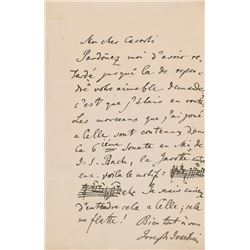 Mon cher Casorti
Pardonez moi d'avoir re-
tardé jusque là de repon-
dre votre aimable demande,
c'est que j'étais en route.
Les morceaux que j'ai joué
a Celle sont contenus dans
la 6ième Sonate en Mi, de
J. S. Bach, la Gavotte
eux, voila le motif:
etc. Je suis
d'entendre cela a Celle, cela
me flatte!
Bientot à vous
Joseph Joachim